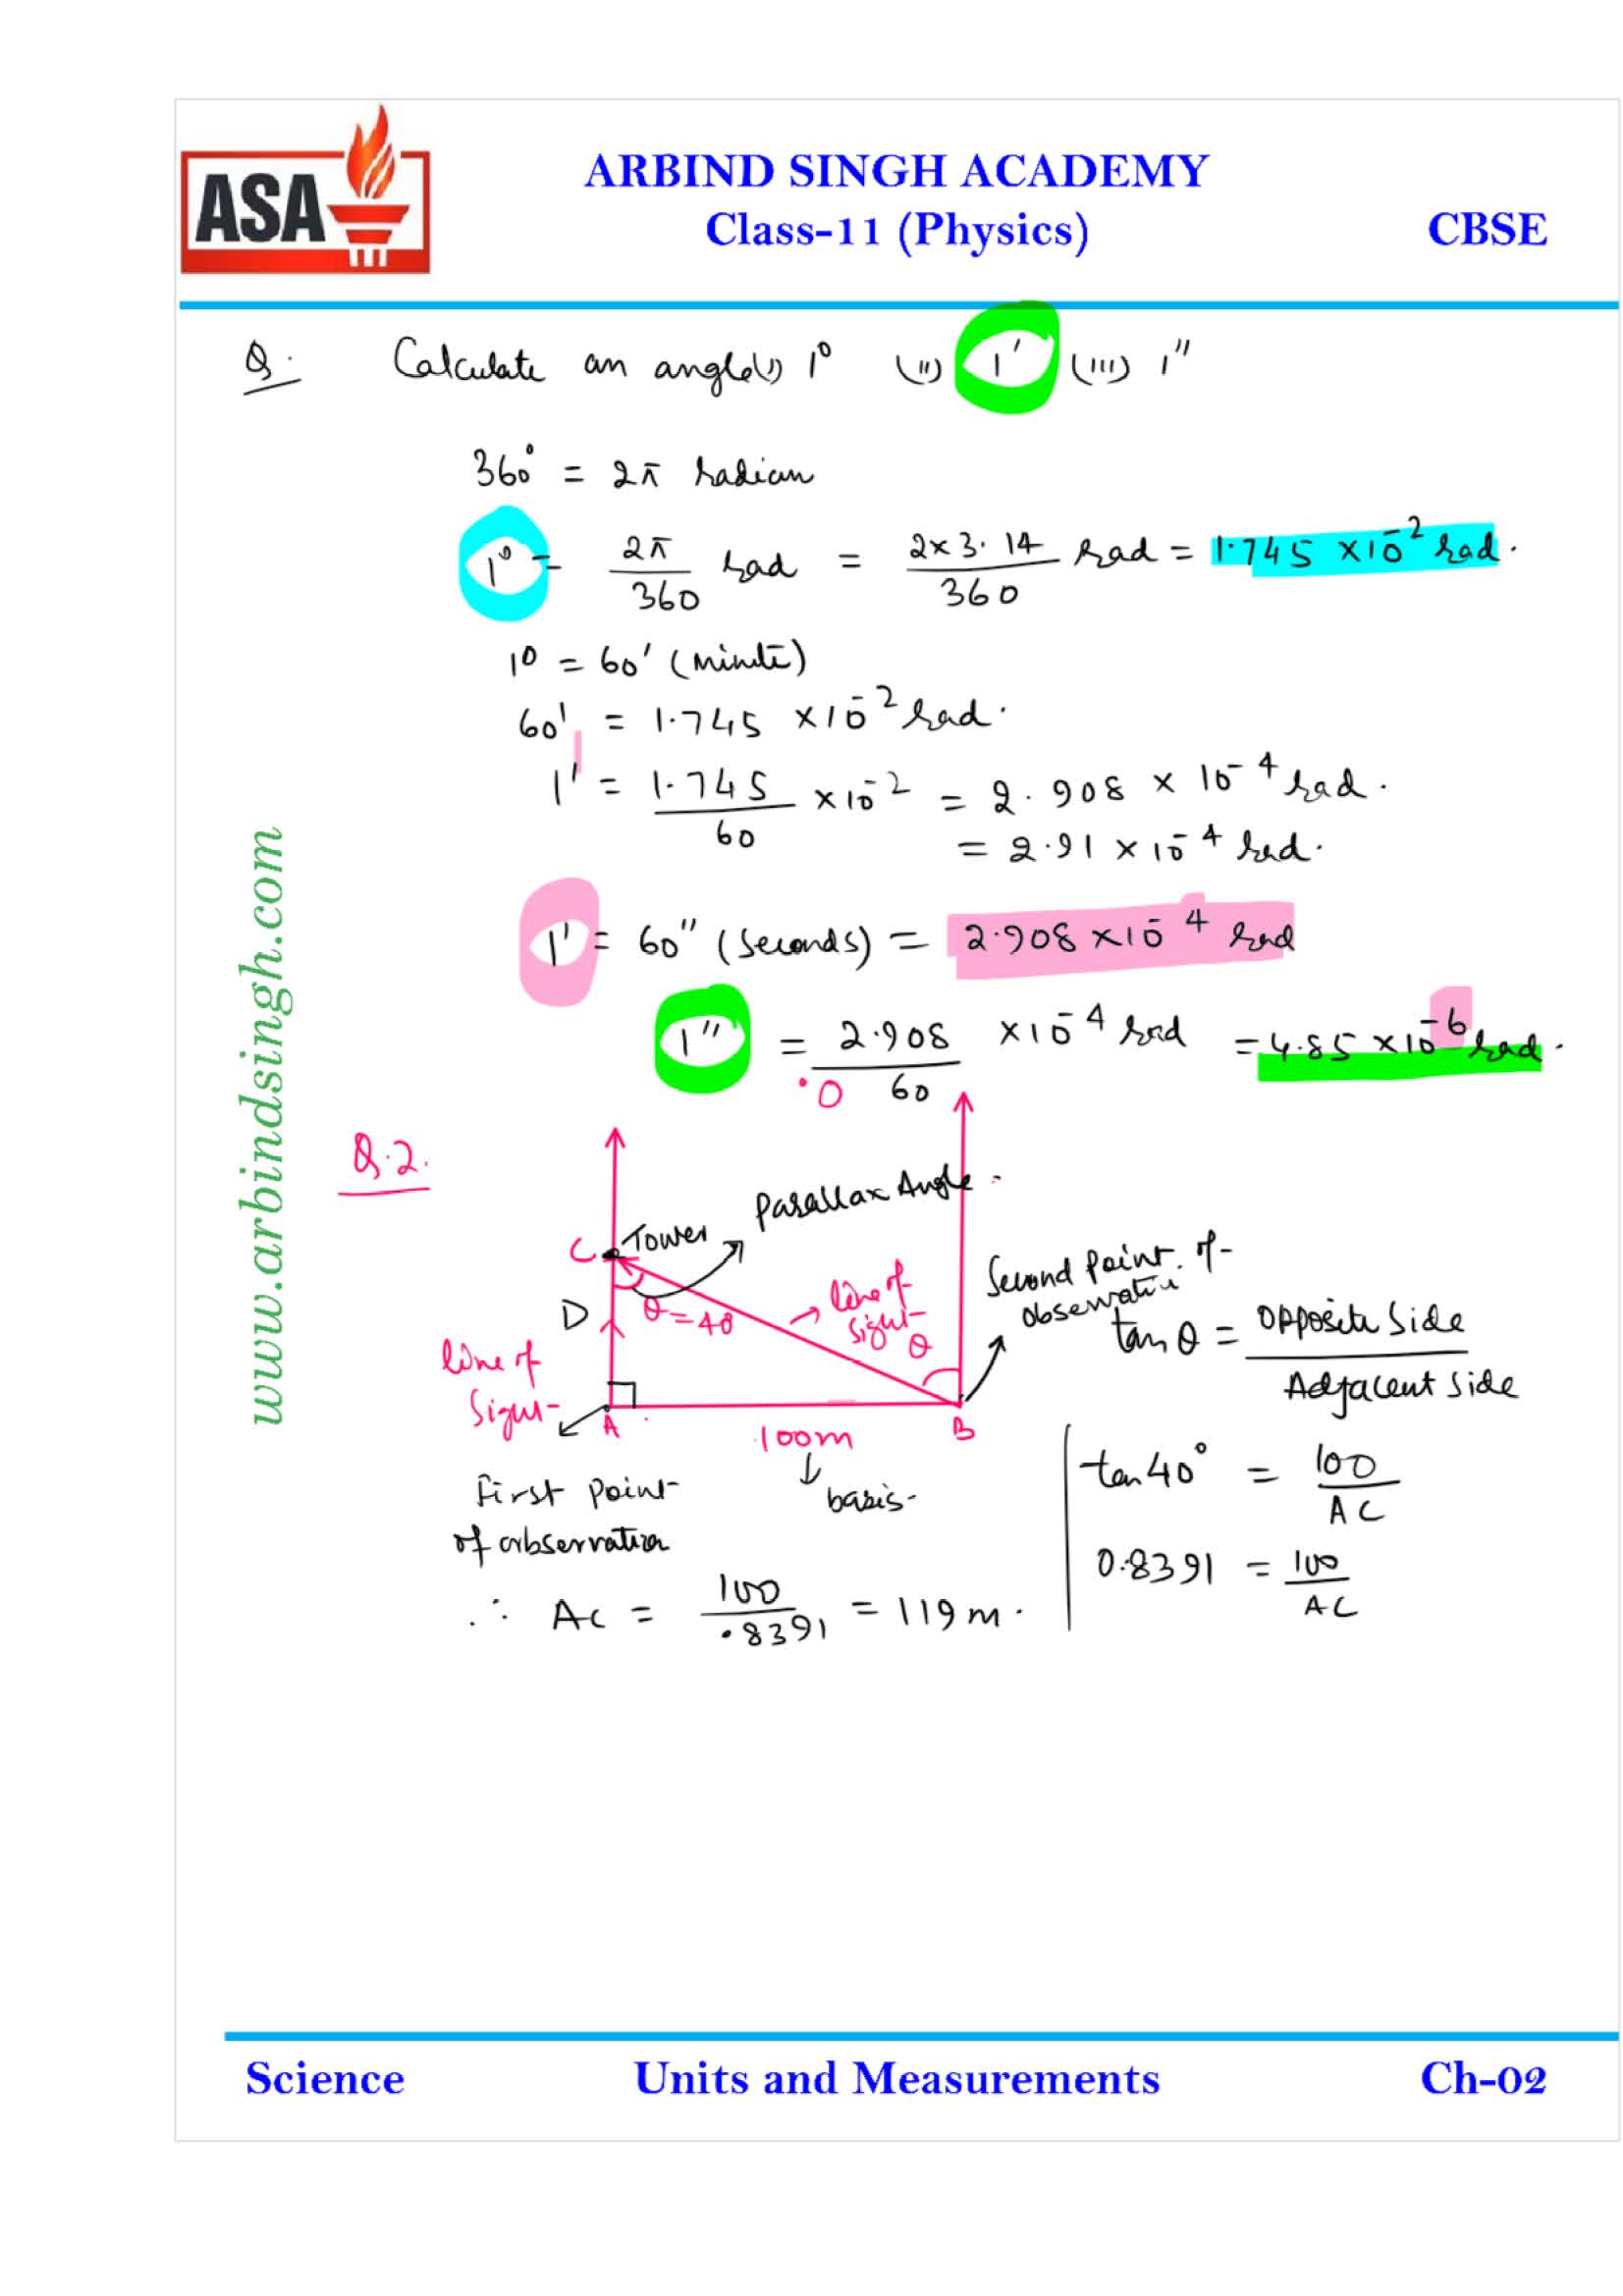 ASA
ARBIND SINGH ACADEMY
Class-11 (Physics)
CBSE
Q. Calculate an angle (i) 1° (ii) 1' (iii) 1"
360° = 2π radian
1° = 2π/360 rad = 2×3.14/360 rad = 1.745 ×10⁻² rad.
1° = 60' (minute)
60' = 1.745 ×10⁻² rad.
1' = 1.745/60 ×10⁻² = 2.908 × 10⁻⁴ rad.
= 2.91 × 10⁻⁴ rad.
1' = 60" (seconds) = 2.908 ×10⁻⁴ rad
1" = 2.908/60 ×10⁻⁴ rad = 4.85 ×10⁻⁶ rad.
.0
Q.2.
Parallax Angle.
C Tower
D
θ = 40
line of
sight
θ
Second point of
observation
line of
sight
A
B
100m
basis
First point
of observation
tan θ = Opposite Side/Adjacent Side
tan 40° = 100/AC
0.8391 = 100/AC
∴ AC = 100/.8391 = 119 m.
www.arbindsingh.com
Science
Units and Measurements
Ch-02